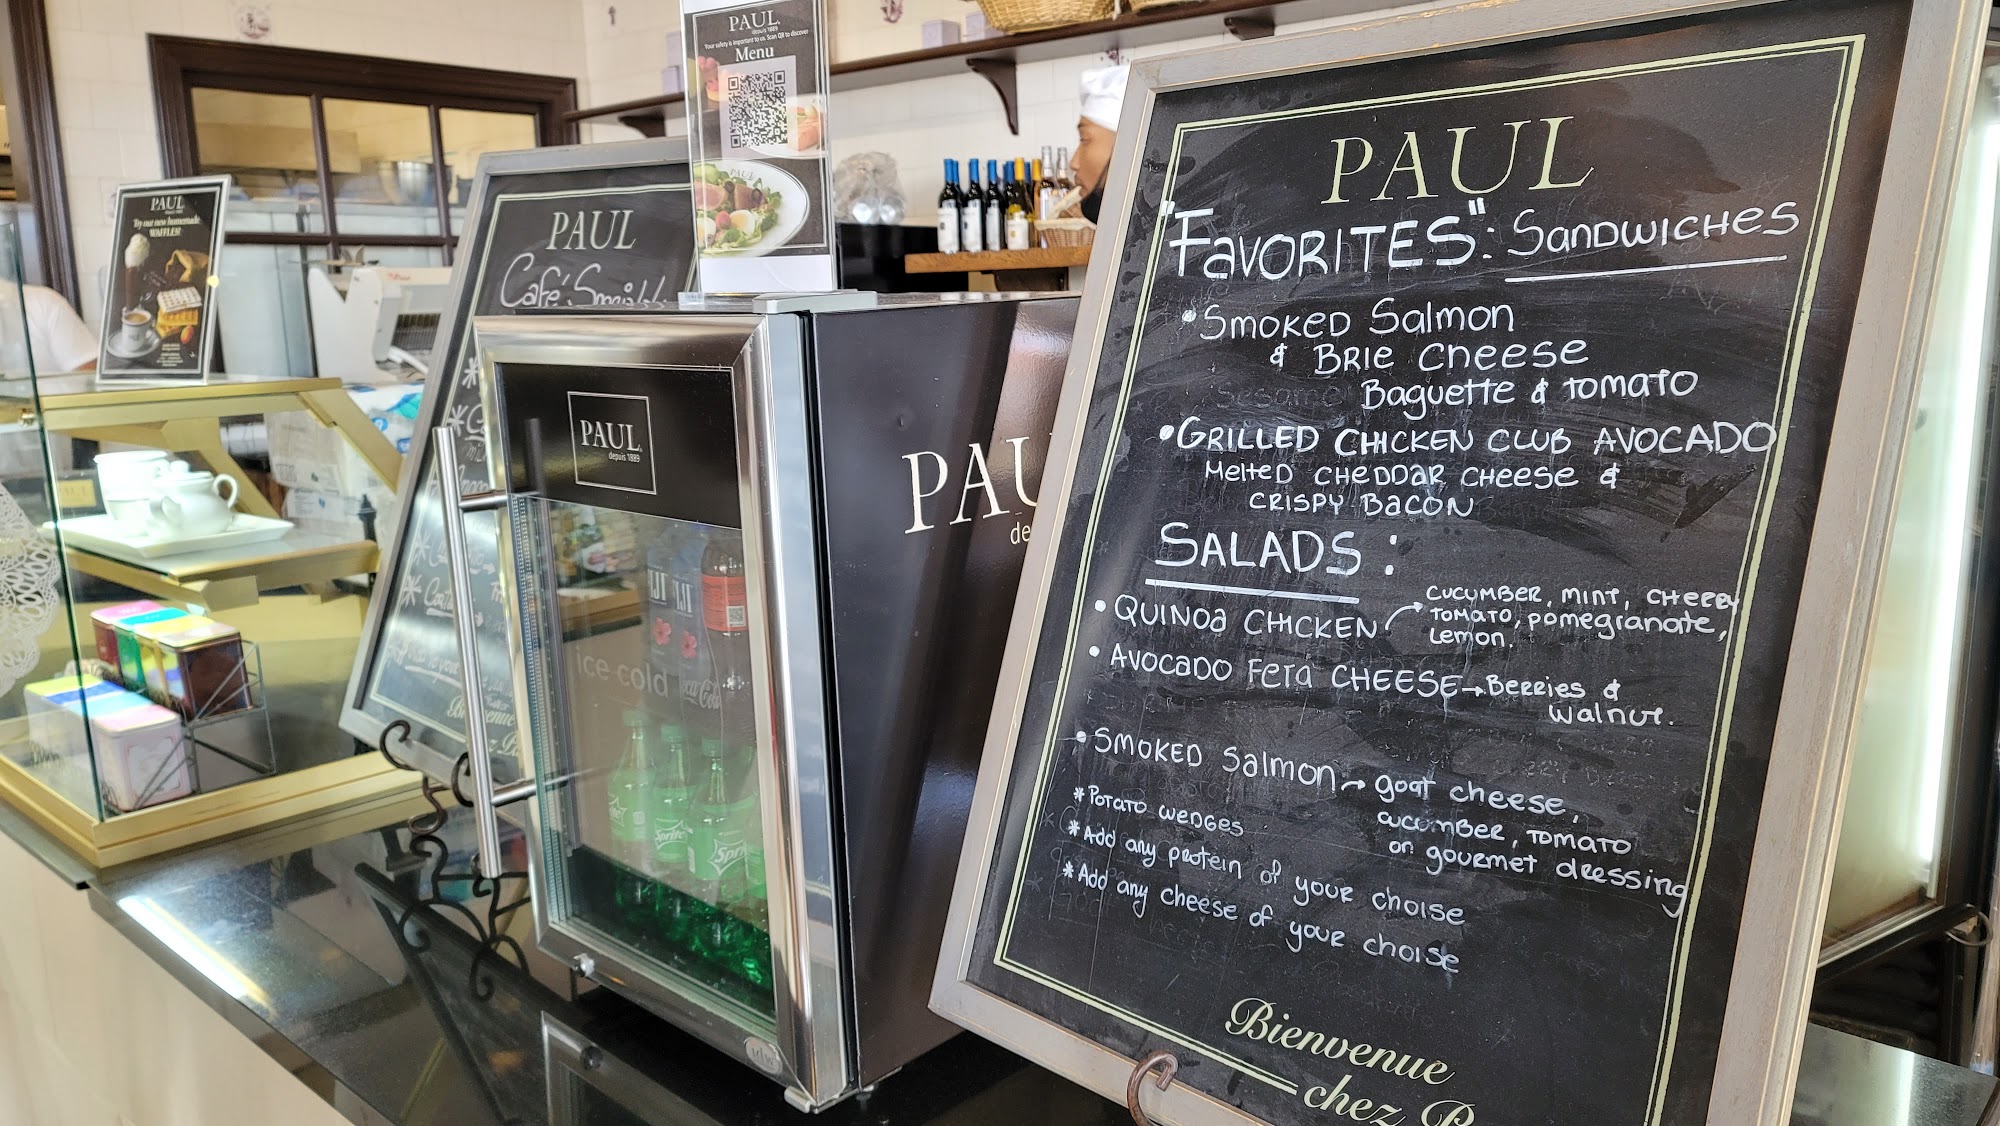 PAUL
Try our new homemade
WAFFLES!
PAUL
depuis 1889
Your safety is important to us. Scan QR to discover
Menu
PAUL
PAUL
Café
Bienvenue
PAUL
depuis 1889
ice cold
Coca-Cola
Sprite
Sprite
PAU
de
PAUL
"FAVORITES": SANDWICHES
• SMOKED Salmon
& BRIE CHEESE
Baguette & TOMATO
• GRILLED CHICKEN CLUB AVOCADO
MELTED CHEDDAR CHEESE &
CRISPY BACON
SALADS:
• QUINOA CHICKEN → CUCUMBER, MINT, CHERRY
TOMATO, POMEGRANATE,
LEMON.
• AVOCADO FETA CHEESE → BERRIES &
WALNUT.
• SMOKED Salmon → goat cheese,
CUCUMBER, TOMATO
on gourmet dressing
* POTATO WEDGES
* Add any protein of your choise
* Add any cheese of your choise
Bienvenue
chez P